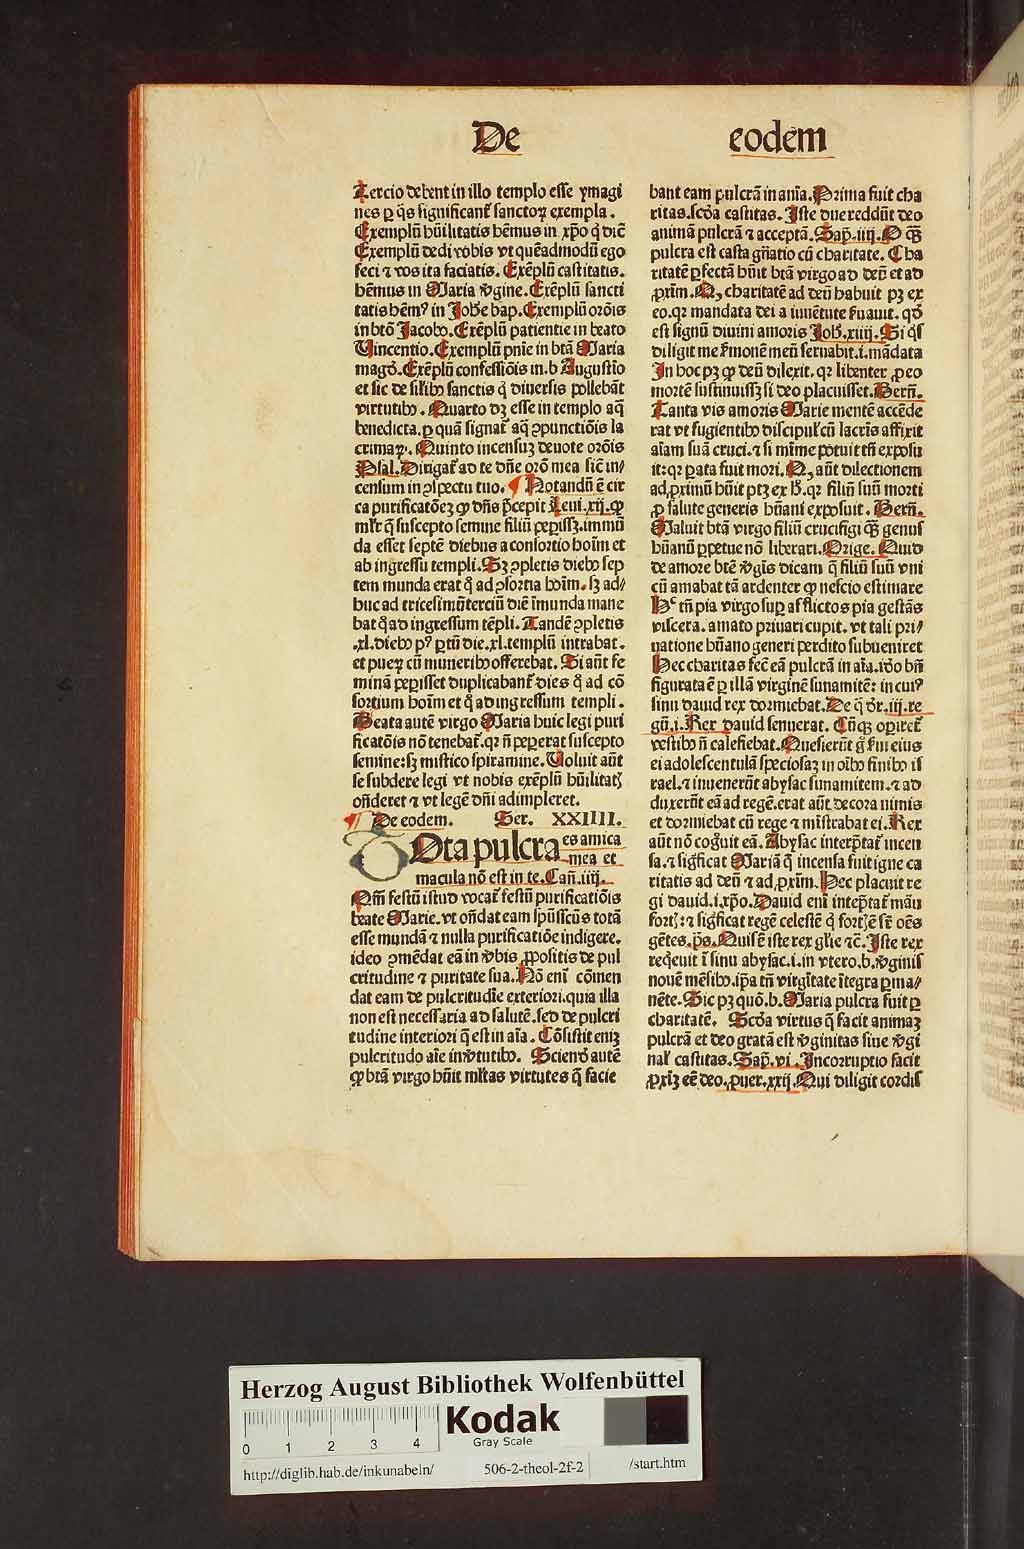 De eodem
Tercio debent in illo templo esse ymagi
nes ꝑ q̄s significant᷑ sanctoꝝ exempla.
Exemplū hūilitatis hēmus in xp̄o q̇ dic̄
Exemplū dedi vobis vt quēadmodū ego
feci ⁊ vos ita faciatis. Exēplū castitatis.
hēmus in Maria v̓gine. Exēplū sancti
tatis hēmꝰ in Joh̄e bap. Exemplū orōis
in btō Jacobo. Exēplū patientie in beato
Vincentio. Exemplū pn̄ie in btā Maria
magd̓. Exēplū confessiōis in .b Augustio
et sic de silibꝰ sanctis q̇ diuersis pollebāt
virtutibꝰ. Quarto dꝫ esse in templo aq̄
benedicta. ꝑ quā signat᷑ aq̄ ꝯpunctiōis la
crimaꝝ. Quinto incensuꝫ deuote orōis
Psal. Dirigat᷑ ad te dn̄e orō mea sic̄ in/
censum in ꝯspectu tuo. ¶ Notandū ē cir
ca purificatōeꝫ ꝙ dn̄s p̄cepit Leui. xij. ꝙ
ml̓r q̄ suscepto semine filiū peꝑissꝫ. immū
da esset septē diebus a consortio hoīm et
ab ingressu templi. Sꝫ ꝯpletis diebꝰ sep
tem munda erat q̇̄ ad ꝯsortia hoīm. sꝫ ad/
huc ad tricesimūterciū diē īmunda mane
bat q̇̄ ad ingressum tēpli. Tandē ꝯpletis
.xl. diebꝰ pꝰ ꝑtū die. xl. templū intrabat.
et pueꝝ cū muneribꝰ offerebat. Si aūt fe
minā peꝑisset duplicabant᷑ dies q̇̄ ad cō
sortium hoīm et q̇̄ ad ingressum templi.
Beata autē virgo Maria huic legi puri
ficatōis nō tenebat᷑. qꝛ n̄ peꝑerat suscepto
semine: sꝫ mistico spiramine. Voluit aūt
se subdere legi vt nobis exēplū hūilitatꝭ
ōnderet ⁊ vt legē dn̄i adimpleret.
¶ De eodem. Ser. XXIIII.
TOta pulcra es amica
mea et
macula nō est in te. Cañ. iiij.
Qm̄ festū istud vocat᷑ festū purificatiōis
beate Marie. vt on̄dat eam sp̄ūsscūs totā
esse mundā ⁊ nulla purificatiōe indigere.
ideo ꝯmēdat eā in v̓bis ꝓpositis de pul
critudine ⁊ puritate sua. Nō eni̅ cōmen
dat eam de pulcritudīe exteriori. quia illa
non est necessaria ad salutē. sed de pulcri
tudine interiori q̄ est in aīa. Cōsistit eniꝫ
pulcritudo aīe in v̓tutibꝰ. Sciend̓ autē
ꝙ btā virgo hūit ml̓tas virtutes q̄ facie
bant eam pulcrā in anīa. Prima fuit cha
ritas. scd̓a castitas. Iste due reddūt deo
animā pulcrā ⁊ acceptā. Sap̄. iiij. O q̄ꝫ
pulcra est casta gn̄atio cū charitate. Cha
ritatē ꝑfectā hūit btā virgo ad deū et ad
ꝓxīm. Qꝫ charitatē ad deū habuit pꝫ ex
eo. qꝛ mandata dei a iuuētute s̓uauit. qd̓
est signū diuini amoris Joh̄. xiiij. Si q̇s
diligit me s̓monē meū seruabit. i. mādata
In hoc pꝫ ꝙ deū dilexit. qꝛ libenter ꝓ eo
mortē sustinuissꝫ si deo placuisset. Berñ.
Tanta vis amoris Marie mentē accēde
rat vt fugientibꝰ discipul̓ cū lacrīs affixit
aīam suā cruci. ⁊ si mīme potuit tn̄ exposu
it: qꝛ ꝑata fuit mori. Q, aūt dilectionem
ad ꝓximū hūit ptꝫ ex h̓. qꝛ filiū suū morti
ꝓ salute generis hūani exposuit. Berñ.
Maluit btā virgo filiū crucifigi q̄ꝫ genus
hūanū ꝑpetue nō liberari. Orige. Quid
de amore btē v̓gīs dicam q̄ filiū suū vni
cū amabat tā ardenter ꝙ nescio estimare
Hͨ tn̄ pia virgo suꝑ afflictos pia gestās
viscera. amato priuari cupit. vt tali pri/
uatione hūano generi perdito subueniret
Hec charitas fec̄ eā pulcrā in aīa. id̓o bn̄
figurata ē ꝑ illā virginē sunamitē: in cuiꝰ
sinu dauid rex dormiebat. De q̄ d̓r. iij. re
gū. i. Rex dauid senuerat. Cūqꝫ oꝑiret᷑
vestibꝰ n̄ calefiebat. Quesierūt g̊ s̓ui eius
ei adolescentulā speciosaꝫ in oībꝰ finibꝰ is
rael. ⁊ inuenerūt abysac sunamitem. ⁊ ad
duxerūt eā ad regē. erat aūt decora nimis
et dormiebat cū rege ⁊ mīstrabat ei. Rex
aūt nō cogͦuit eā. Abysac interp̄tat᷑ incen
sa. ⁊ sigͥficat Mariā q̄ incensa fuit igne ca
ritatis ad deū ⁊ ad ꝓxīm. Hec placuit re
gi dauid. i. xp̄o. Dauid eni̅ intep̄tat᷑ māu
fortꝭ: ⁊ sigͥficat regē celestē q̇ fortꝭ ē sr̄ oēs
gētes. p̄s. Quis ē iste rex gl̓ie ⁊c̄. Iste rex
reqͥeuit ī sinu abysac. i. in vtero. b. v̓ginis
nouē mēsibꝰ. ip̄a tn̄ virgītate ītegra ꝑma/
nēte. Sic pꝫ quō. b. Maria pulcra fuit ꝑ
charitatē. Scd̓a virtus q̄ facit animaꝫ
pulcrā et deo gratā est v̓ginitas siue v̓gi
nal̓ castitas. Sap̄. vi. Incorruptio facit
ꝓxīꝫ eē deo. ꝓuer. xxij. Qui diligit cordis
Herzog August Bibliothek Wolfenbüttel
0 1 2 3 4
Kodak
Gray Scale
http://diglib.hab.de/inkunabeln/ 506-2-theol-2f-2 /start.htm